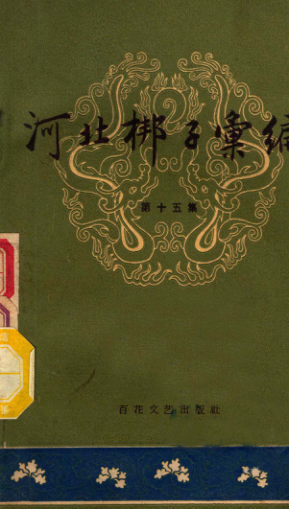 河北梆子彙編
第十五集
百花文艺出版社